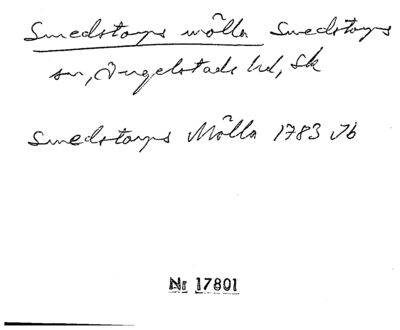 Smedstorps mölla Smedstorps
sn, Ingelstads hd, Sk
Smedstorps Mölla 1783 Jb
Nr 17801